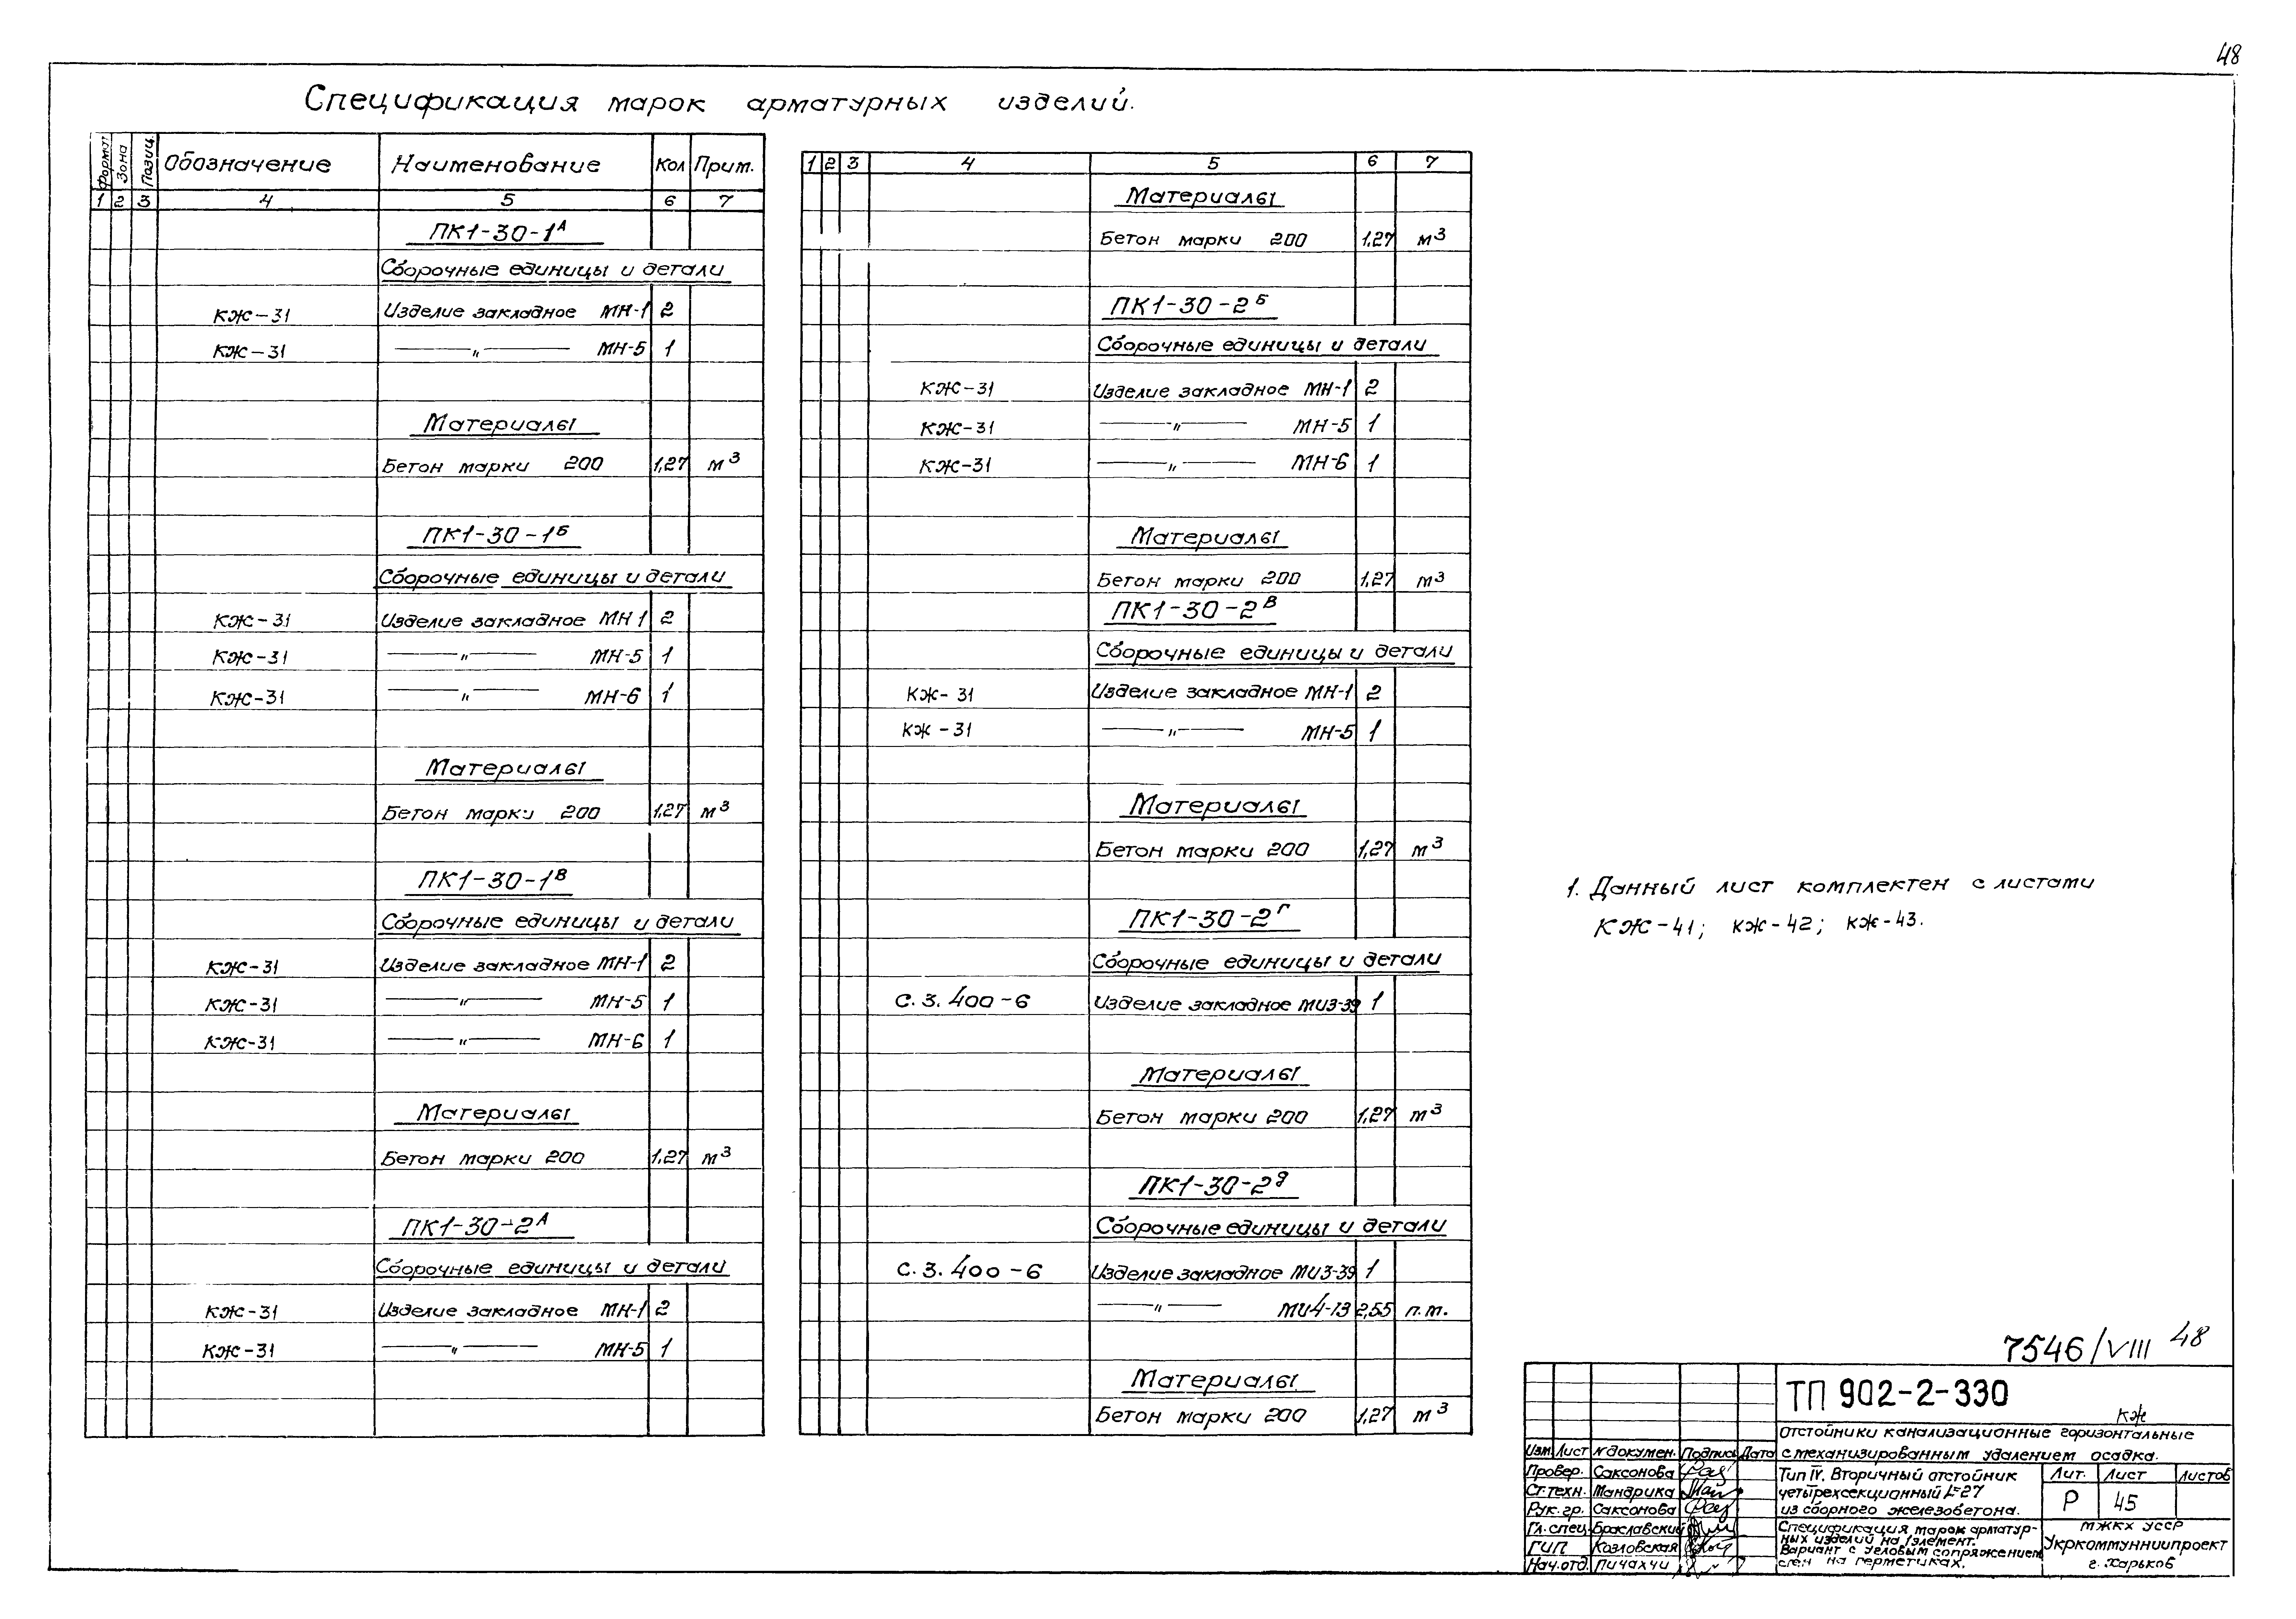 48
Спецификация марок арматурных изделий.
Формат Зона Позиц. Обозначение Наименование Кол Прим.
1 2 3 4 5 6 7
ПК1-30-1А
Сборочные единицы и детали
КЖ-31 Изделие закладное МН-1 2
КЖ-31 —„— МН-5 1
Материалы
Бетон марки 200 1,27 м3
ПК1-30-1Б
Сборочные единицы и детали
КЖ-31 Изделие закладное МН 1 2
КЖ-31 —„— МН-5 1
КЖ-31 —„— МН-6 1
Материалы
Бетон марки 200 1,27 м3
ПК1-30-1В
Сборочные единицы и детали
КЖ-31 Изделие закладное МН-1 2
КЖ-31 —„— МН-5 1
КЖ-31 —„— МН-6 1
Материалы
Бетон марки 200 1,27 м3
ПК1-30-2А
Сборочные единицы и детали
КЖ-31 Изделие закладное МН-1 2
КЖ-31 —„— МН-5 1
1 2 3 4 5 6 7
Материалы
Бетон марки 200 1,27 м3
ПК1-30-2Б
Сборочные единицы и детали
КЖ-31 Изделие закладное МН-1 2
КЖ-31 —„— МН-5 1
КЖ-31 —„— МН-6 1
Материалы
Бетон марки 200 1,27 м3
ПК1-30-2В
Сборочные единицы и детали
КЖ-31 Изделие закладное МН-1 2
КЖ-31 —„— МН-5 1
Материалы
Бетон марки 200 1,27 м3
ПК1-30-2Г
Сборочные единицы и детали
С.3.400-6 Изделие закладное МИ3-39 1
Материалы
Бетон марки 200 1,27 м3
ПК1-30-2д
Сборочные единицы и детали
С.3.400-6 Изделие закладное МИ3-39 1
—„— МИ4-13 2,55 п.м.
Материалы
Бетон марки 200 1,27 м3
1. Данный лист комплектен с листами
КЖ-41; КЖ-42; КЖ-43.
7546/VIII 48
ТП 902-2-330
КЖ
Отстойники канализационные горизонтальные
с механизированным удалением осадка.
Изм. Лист N докумен. Подпись Дата
Провер. Саксонова
Ст.техн. Мандрика
Рук. гр. Саксонова
Гл. спец. Браславский
ГИП Козловская
Нач.отд. Пичахчи
Тип IV. Вторичный отстойник
четырехсекционный L=27
из сборного железобетона.
Лит. Лист Листов
Р 45
Спецификация марок арматур-
ных изделий на 1 элемент.
Вариант с угловым сопряжением
стен на герметиках.
МЖКХ УССР
Укркоммунниипроект
г. Харьков